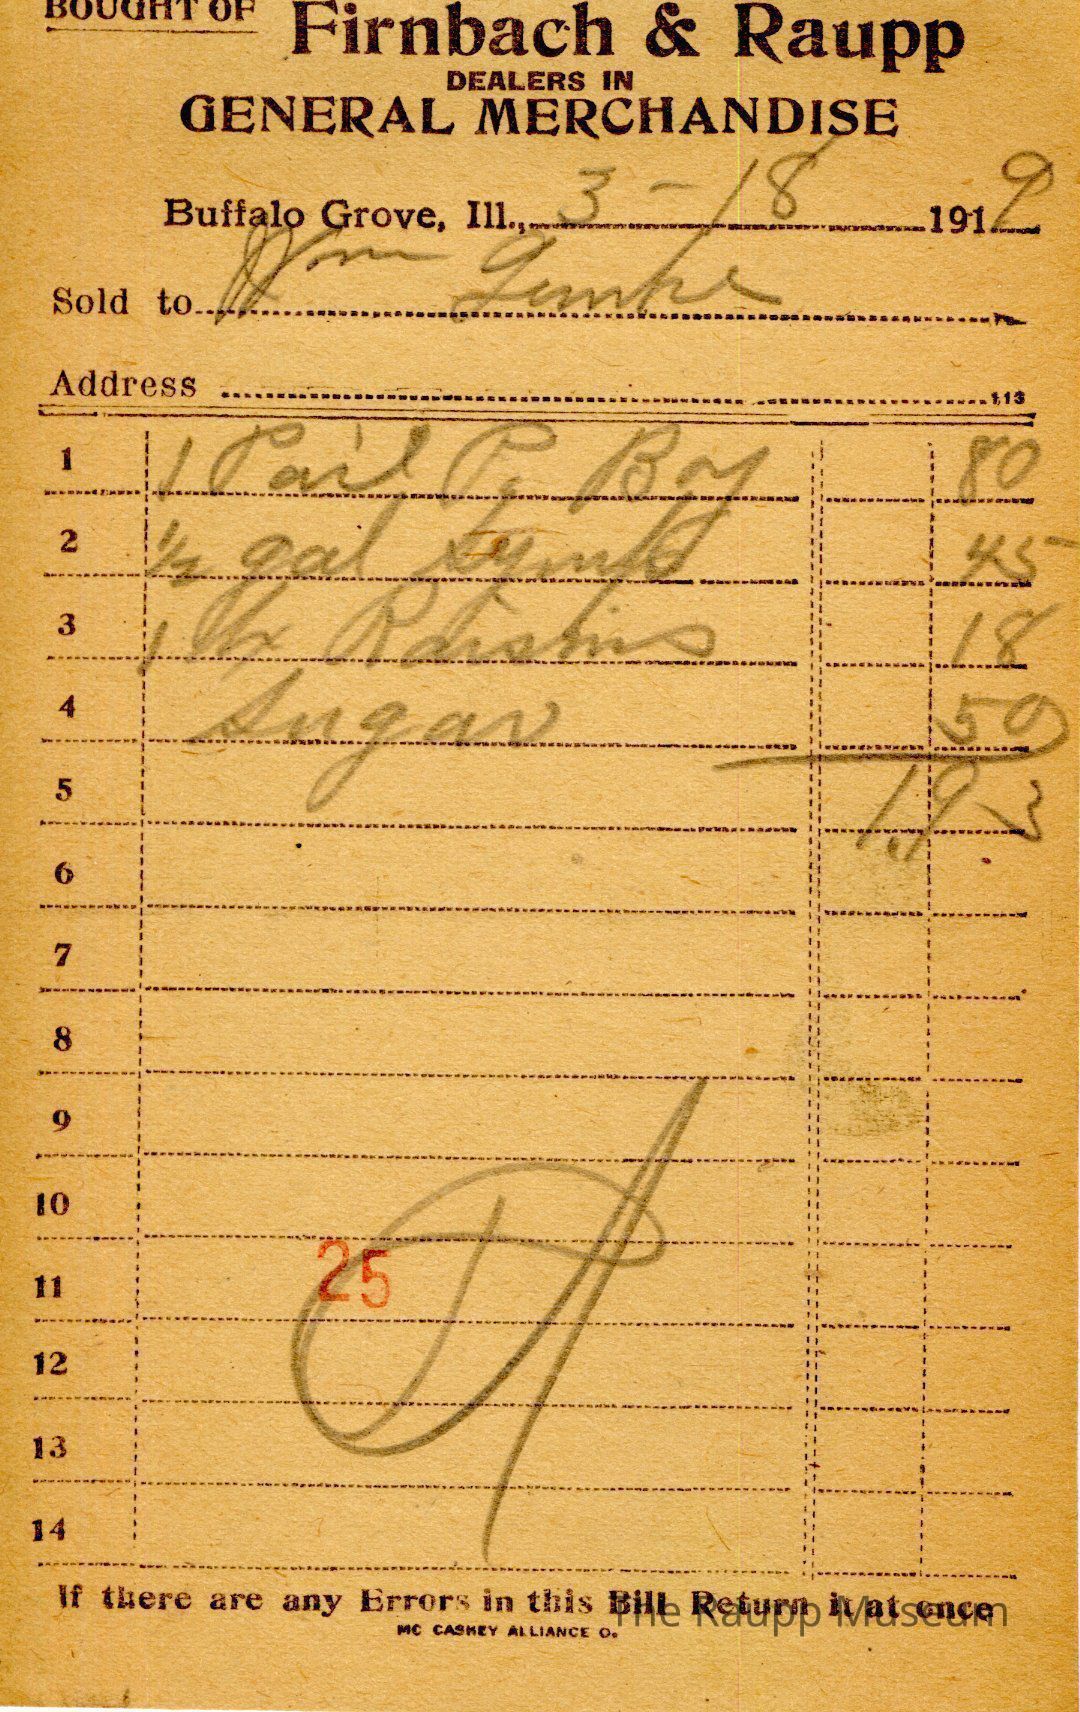 BOUGHT OF Firnbach & Raupp
DEALERS IN
GENERAL MERCHANDISE
Buffalo Grove, Ill., 3-18 1919
Sold to Wm
Address 113
1 1 Pail P. Boy 80
2 1/2 gal 45
3 1 Raisins 18
4 Sugar 50
5 1.93
6
7
8
9
10
11 25
12
13
14
If there are any Errors in this Bill Return it at once
MC CASKEY ALLIANCE O.
The Raupp Museum